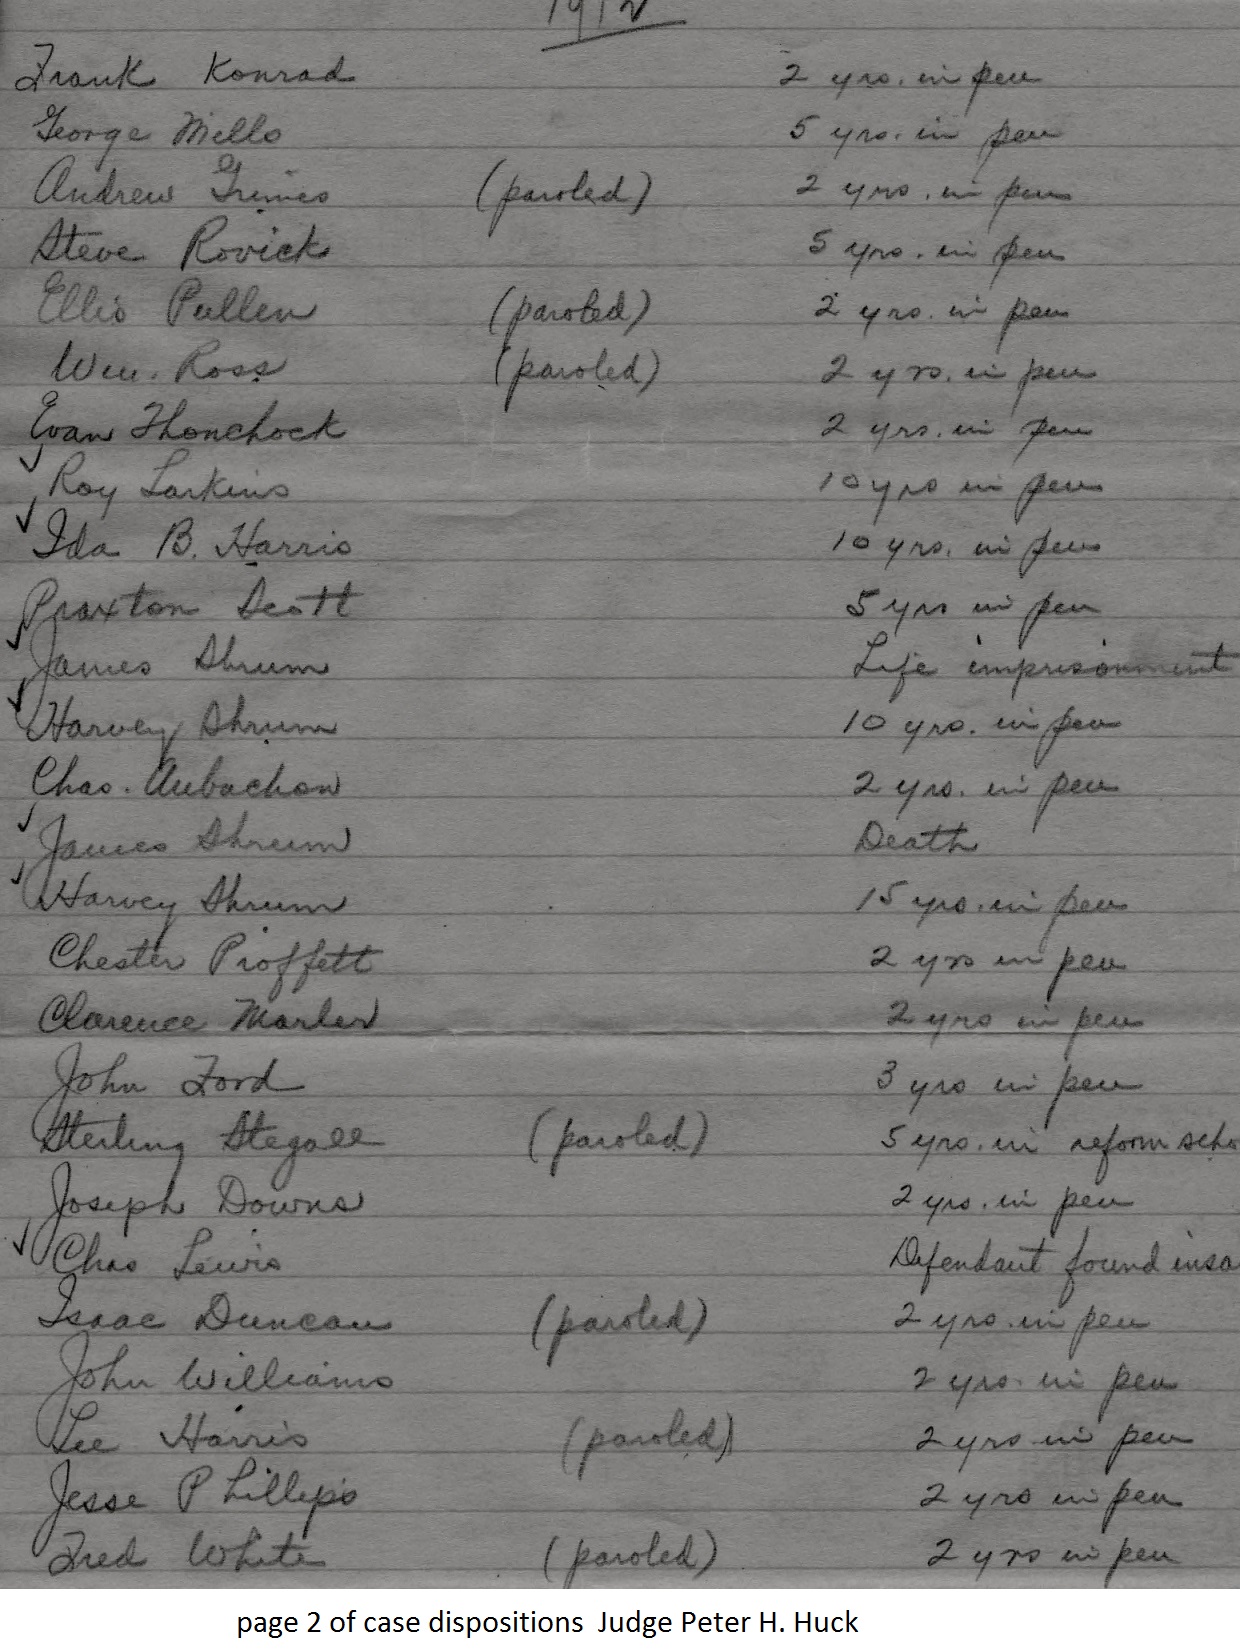 1912
Frank Konrad 2 yrs. in pen
George Mills 5 yrs. in pen
Andrew Grimes (paroled) 2 yrs. in pen
Steve Rovick 5 yrs. in pen
Ellis Pullen (paroled) 2 yrs. in pen
Wm. Ross (paroled) 2 yrs. in pen
Evan Thonchock 2 yrs. in pen
Roy Larkins 10 yrs in pen
Ida B. Harris 10 yrs. in pen
Praxton Scott 5 yrs in pen
James Shrum Life imprisonment
Harvey Shrum 10 yrs. in pen
Chas. Aubuchon 2 yrs. in pen
James Shrum Death
Harvey Shrum 15 yrs. in pen
Chester Proffett 2 yrs in pen
Clarence Marler 2 yrs in pen
John Ford 3 yrs in pen
Sterling Stegall (paroled) 5 yrs. in reform scho
Joseph Downs 2 yrs. in pen
Chas Lewis Defendant found insa
Isaac Duncan (paroled) 2 yrs. in pen
John Williams 2 yrs. in pen
Lee Harris (paroled) 2 yrs in pen
Jesse Phillips 2 yrs in pen
Fred White (paroled) 2 yrs in pen
page 2 of case dispositions Judge Peter H. Huck